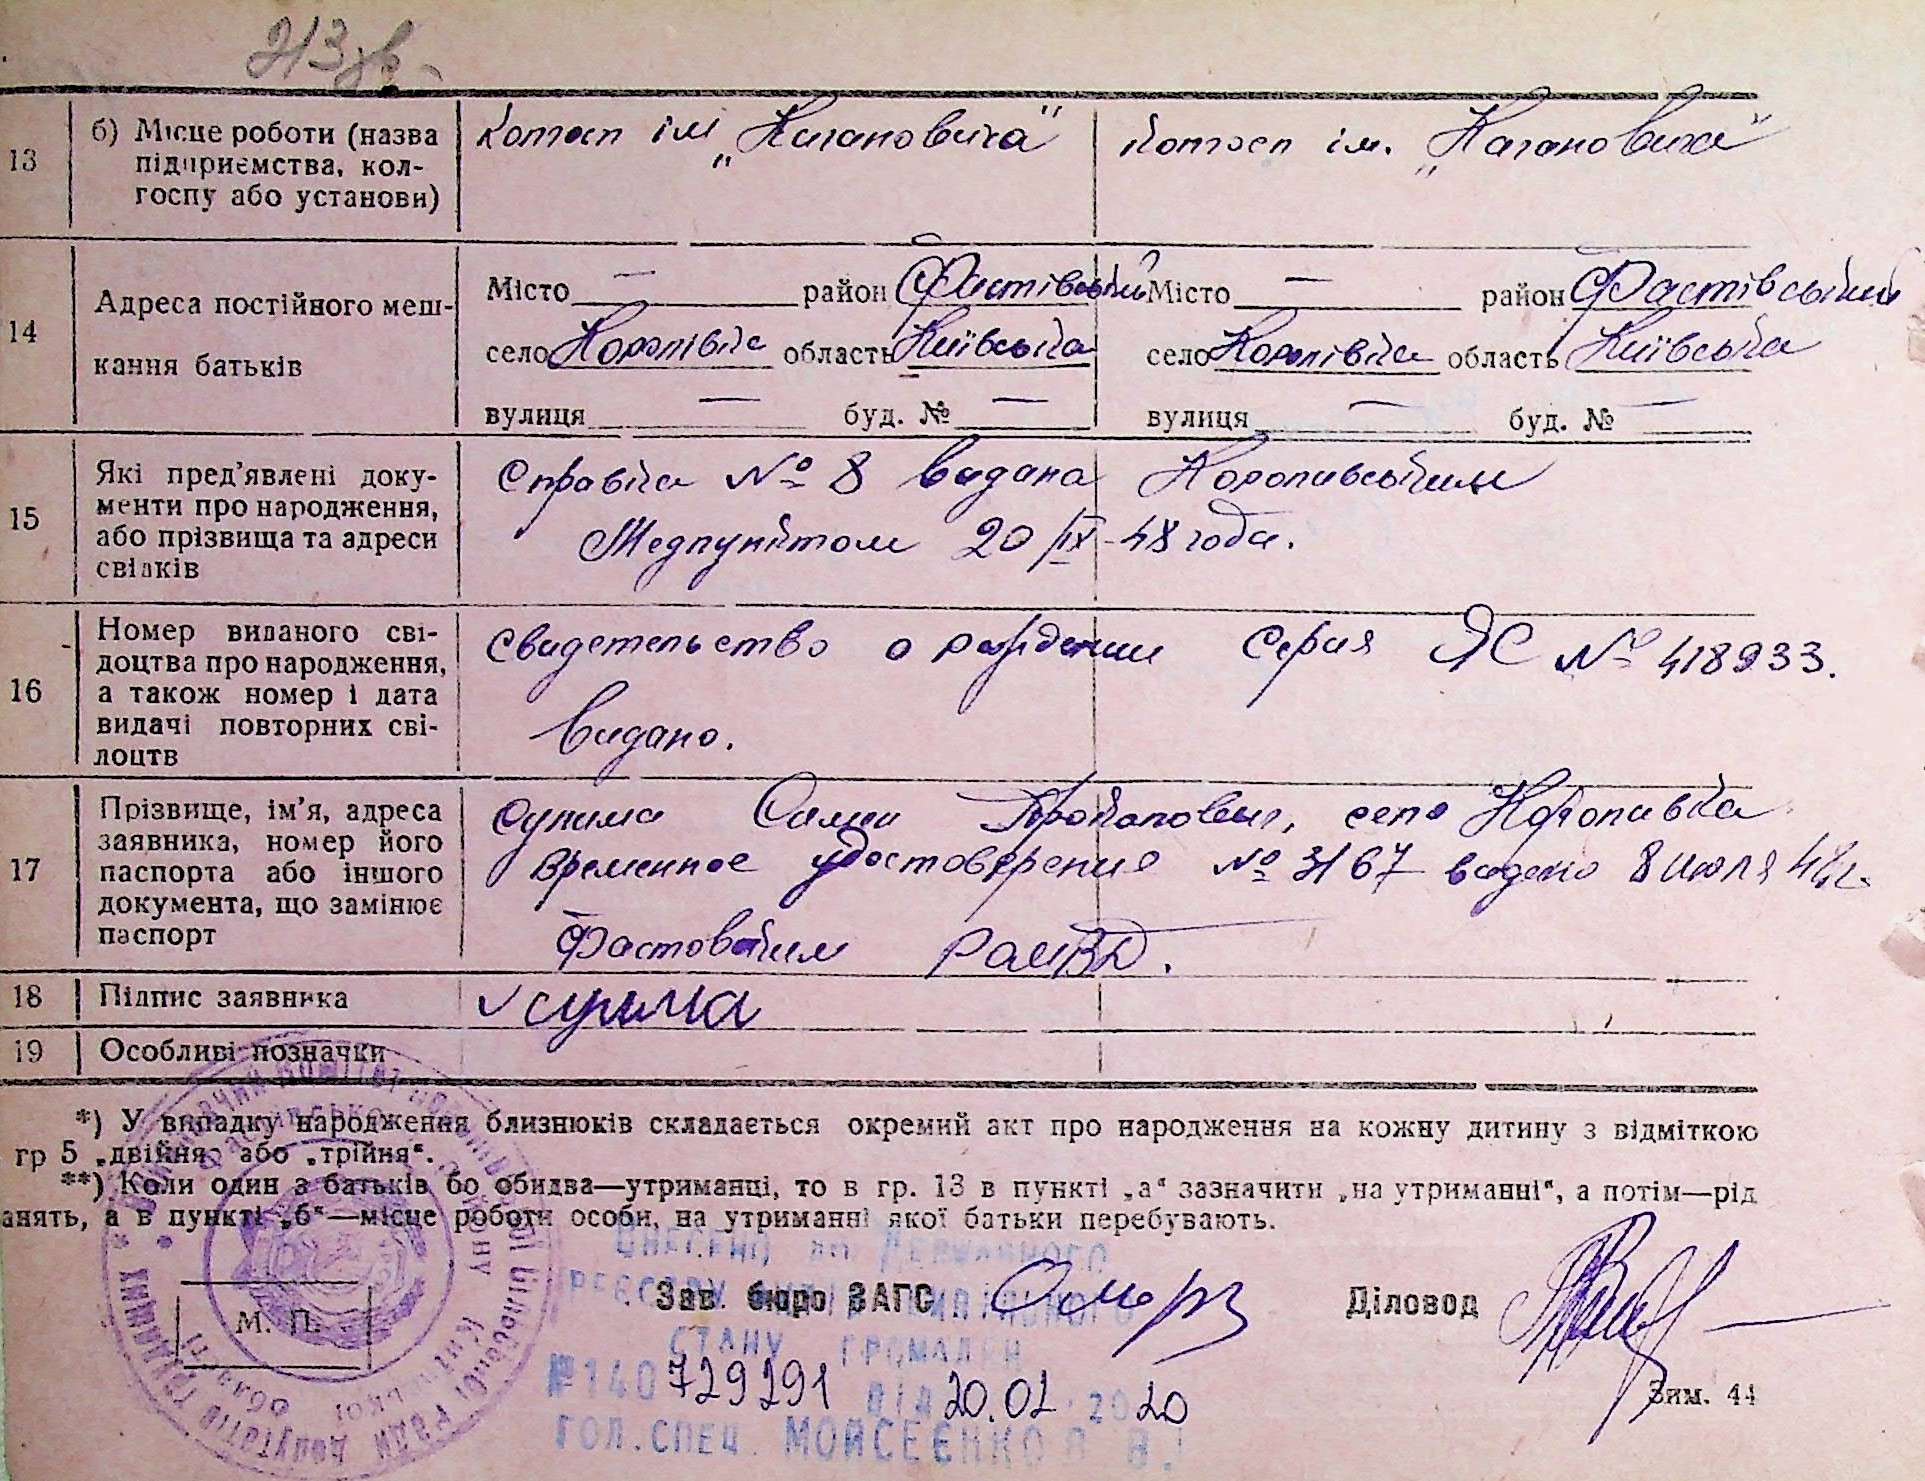 213 зв.
13 б) Місце роботи (назва підприємства, кол-госпу або установи) Колгосп ім „Кагановича" Колгосп ім. „Кагановича"
14 Адреса постійного меш-кання батьків
Місто — район Фастівський Місто — район Фастівський
село Коропівка область Київська село Коропівка область Київська
вулиця — буд. № — вулиця — буд. № —
15 Які пред'явлені доку-
менти про народження,
або прізвища та адреси
свідків
Справка № 8 видана Коропивським
Медпунктом 20/IX-48 года.
16 Номер виданого сві-
доцтва про народження,
а також номер і дата
видачі повторних сві-
доцтв
Свидетельство о рождении Серия ЯС № 418933.
видано.
17 Прізвище, ім'я, адреса
заявника, номер його
паспорта або іншого
документа, що замінює
паспорт
Сулима село Коропивка
Временное удостоверение № 3167 видано 8 июля 48г.
Фастовским РОМВД.
18 Підпис заявника ✓ Сулима
19 Особливі позначки
*) У випадку народження близнюків складається окремий акт про народження на кожну дитину з відміткою
гр 5 „двійня" або „трійня".
**) Коли один з батьків бо обидва—утриманці, то в гр. 13 в пункті „а" зазначити „на утриманні", а потім—рід
анять, а в пункті „б"—місце роботи особи, на утриманні якої батьки перебувають.
Внесено до Державного
реєстру актів цивільного
стану громадян
№ 140729291 від 20.02.2020
Гол.спец. Мойсеєнко
Зав. бюро ЗАГС Діловод
М. П.
Зим. 44